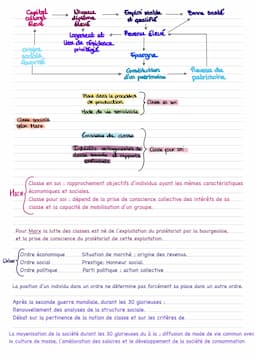 Capital culturel élevé
Niveau diplôme élevé
Emploi stable et qualifié
Bonne santé
Logement et lieu de résidence privilégié
Revenu élevé
Origine sociale favorisée
Epargne
Constitution d'un patrimoine
Revenu du patrimoine
Place dans le processus de production
Mode de vie semblable
Classe en soi
Classe sociale selon Marx
Conscience de classe
Classe pour soi
Marx
Classe en soi : rapprochement objectifs d'individus ayant les mêmes caractéristiques
économiques et sociales.
Classe pour soi : dépend de la prise de conscience collective des intérêts de sa
classe et la capacité de mobilisation d'un groupe.
Pour Marx la lutte des classes est né de l'exploitation du prolétariat par la bourgeoisie,
et la prise de conscience du prolétariat de cette exploitation.
Weber
Ordre économique Situation de marché ; origine des revenus.
Ordre social Prestige; Honneur social.
Ordre politique Parti politique ; action collective
La position d'un individu dans un ordre ne détermine pas forcément sa place dans un autre ordre.
Après la seconde guerre mondiale, durant les 30 glorieuses :
Renouvellement des analyses de la structure sociale.
Débat sur la pertinence de la notion de classe et sur les critères de
La moyennisation de la société durant les 30 glorieuses du à la ; diffusion de mode de vie commun avec
la culture de masse, l'amélioration des salaires et le développement de la société de consommation.